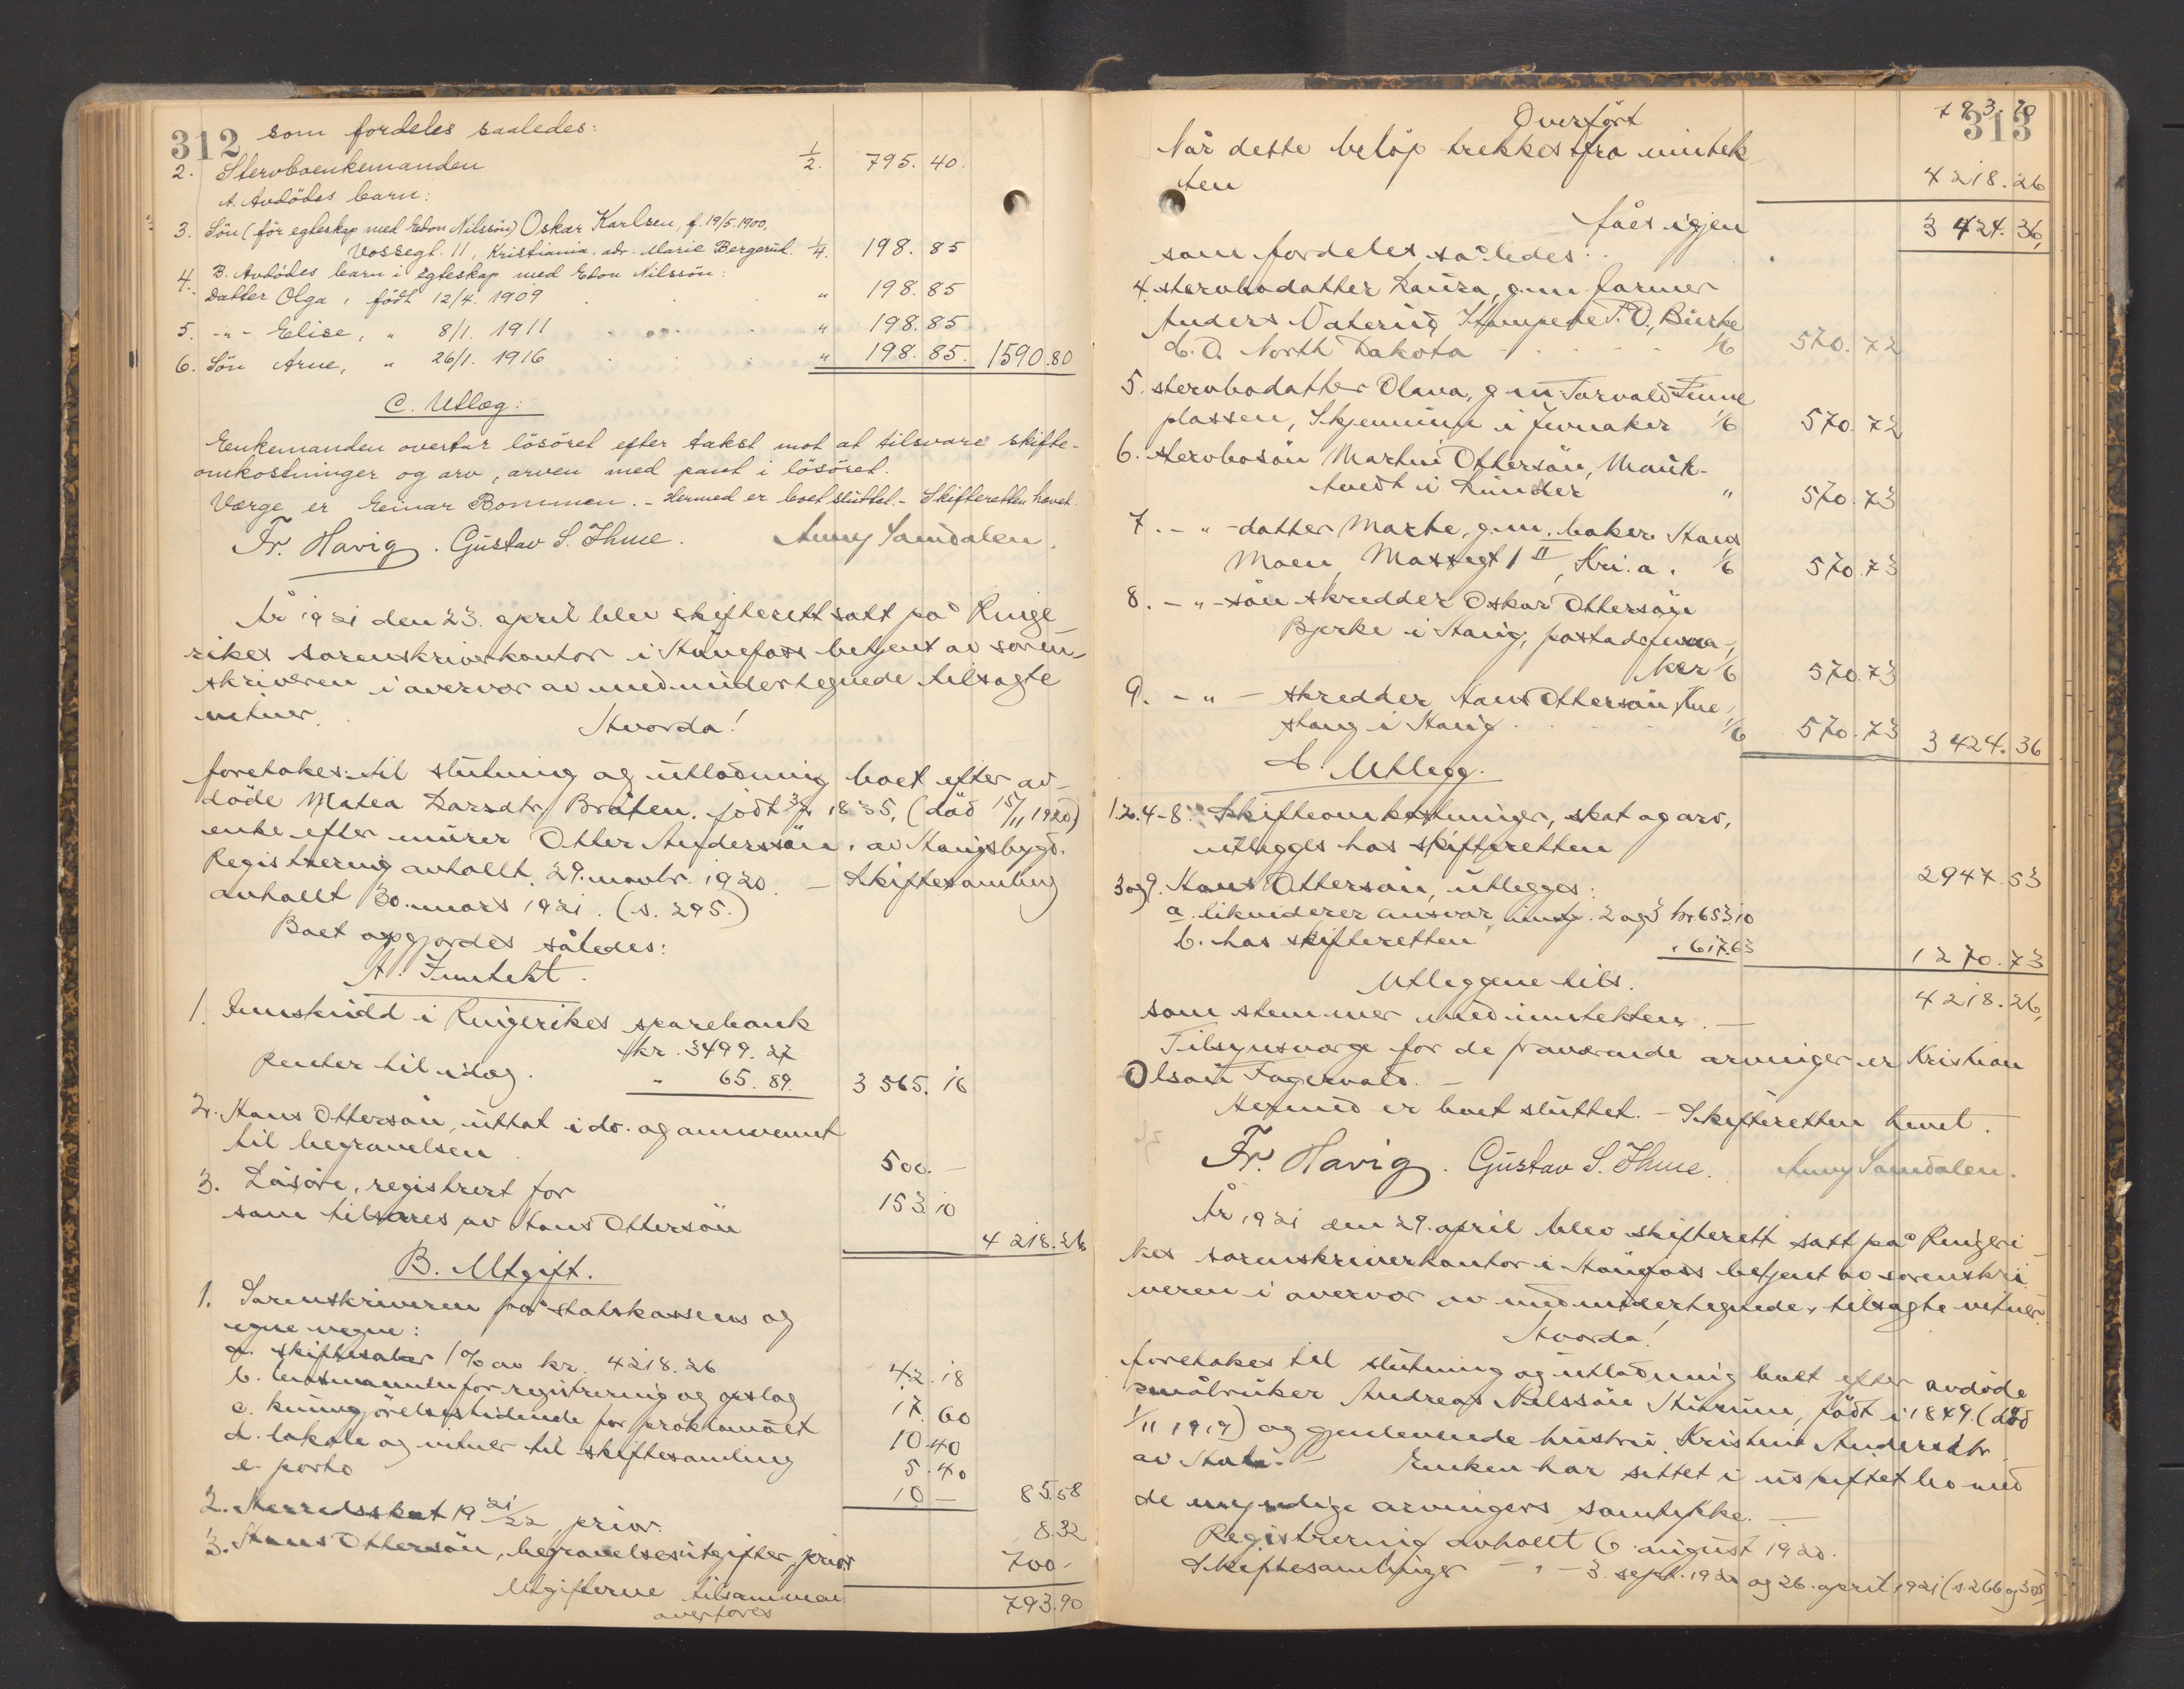 312 som fordeles saaledes:
2. Stervboenkemanden 1/2. 795.40.
A. Avdödes barn:
3. Sön (för egteskap med Edon Nilssön) Oskar Karlsen, f. 19/5.1900,
Vossegt. 11, Kristiania. adr. Marie Bergerud. 1/4. 198.85
B. Avdödes barn i egteskap med Edon Nilssön:
4. Datter Olga, födt 12/4. 1909 " 198.85
5. -"- Elise, " 8/1. 1911 " 198.85
6. Sön Arne, " 26/1. 1916 " 198.85. 1590.80
C. Utlæg:
Enkemanden overtar lösöret efter takst mot at tilsvare skifte-
omkostninger og arv, arven med pant i lösöret.
Værge er Einar Bommen. - Hermed er boet sluttet. - Skifteretten hævet.
Fr. Havig. Gustav S. Thme. Anny Samdalen.
År 1921 den 23. april blev skifterett satt på Ringe-
rikes sorenskriverkontor i Hönefoss betjent av soren-
skriveren i overvær av medundertegnede tilsagte
vitner.
Hvorda!
foretokes til slutning og utlodning boet efter av-
döde Matea Larsdtr. Bråten, födt 3/7 1835, (död 15/11 1920)
enke efter murer Otter Anderssön, av Haugsbygd.
Registrering avhollt 29. novbr. 1920. - Skiftesamling
avhollt 30. mars 1921. (s. 295.)
Boet opgjordes således:
A. Inntekt.
1. Innskudd i Ringerikes sparebank
kr. 3499.27
Renter til idag. " 65.89. 3 565.16
2. Hans Ottersön, uttat i do. og annvennt
til begravelsen 500.-
3. Lösöre, registrert for 153.10
som tilsvares av Hans Ottersön
4 218.26
B. Utgift.
1. Sorenskriveren på statskassens og
egne vegne:
a. skiftesalær 1% av kr. 4218.26 42.18
b. lensmannen for registrering og opslag 17.60
c. kunngjörelsestidende for proklamaet 10.40
d. lokale og vitner til skiftesamling 5.40
e. porto 10.- 85.58
2. Herredsskat 19 21/22 prior. 8.32
3. Hans Ottersön, begravelsesutgifter, prior. 700.-
Utgifterne tilsammen: 793.90
overföres
313
Overfört 793.90
Når dette belöp trekkes fra inntek
ten 4218.26
fåes igjen 3 424.36,
som fordeles således:
4. stervbodatter Laura, g.m. farmer
Anders Vaterud, Stampede P.O., Burke
C.O. North Dakota 1/6 570.72
5. stervbodatter Olava, g.m. Torvald Finne
plassen, Skjennum i Jevnaker 1/6 570.72
6. stervbosön Martin Ottersön, Mauk-
tvedt i Lunder " 570.73
7. -"- datter Marte, g.m. baker Hans
Moen, Mossegt 1 II, Kri.a. 1/6 570.73
8. -"- sön skredder Oskar Ottersön
Bjerke i Haug, postadr Jevna-
ker 1/6 570.73
9. -"- skredder Hans Ottersön,
stang i Haug 1/6 570.73 3424.36
C. Utlegg.
1.2.4-8. Skifteomkostninger, skat og arv,
utlegges hos skifteretten 2947.53
3 og 9. Hans Ottersön, utlegges:
a. likviderer ansvar, inntp. 2 og 3 kr 653.10
b. hos skifteretten " 617.63 1270.73
Utleggene tils. 4218.26,
som stemmer med inntekten. -
Tilsynsværge for de fraværende arvinger er Kristian
Olsön Fagervold. -
Hermed er boet sluttet. - Skifteretten hevet.
Fr. Havig. Gustav S. Thme. Anny Samdalen.
År 1921 den 29. april blev skifterett satt på Ringeri-
kes sorenskriverkontor i Hönefoss betjent av sorenskri
veren i overvær av medundertegnede, tilsagte vitner.
Hvorda!
foretokes til slutning og utlodning boet efter avdöde
småbruker Andreas Nilssön, födt i 1849. (död
1/11 1917) og gjenlevende hustru, Kristine Andersdtr.
av Hole. - Enken har sittet i uskiftet bo med
de myndige arvingers samtykke. -
Registrering avhollt 6. august 1920.
Skiftesamlinger -"- 3. sept. 1920 og 26. april 1921 (s. 266 og 305)